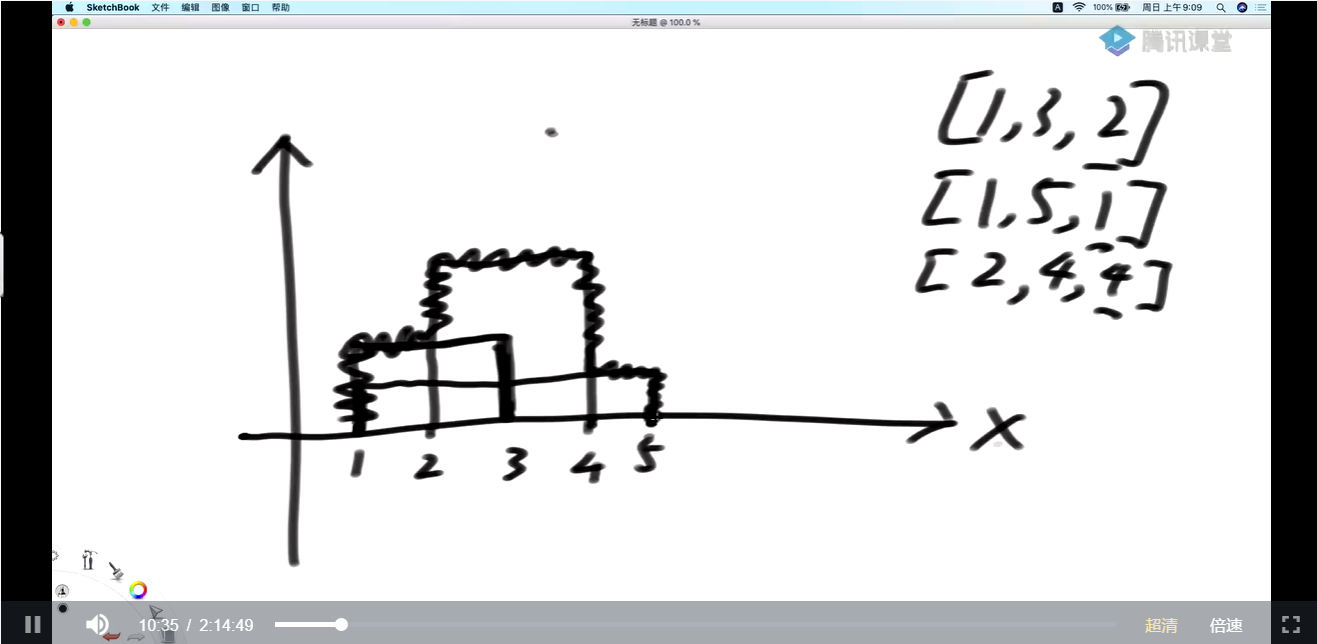 SketchBook 文件 编辑 图像 窗口 帮助 A 100% 周日 上午9:09
无标题 @ 100.0 %
腾讯课堂
[1,3,2]
[1,5,1]
[2,4,4]
X
1 2 3 4 5
10:35 / 2:14:49 超清 倍速